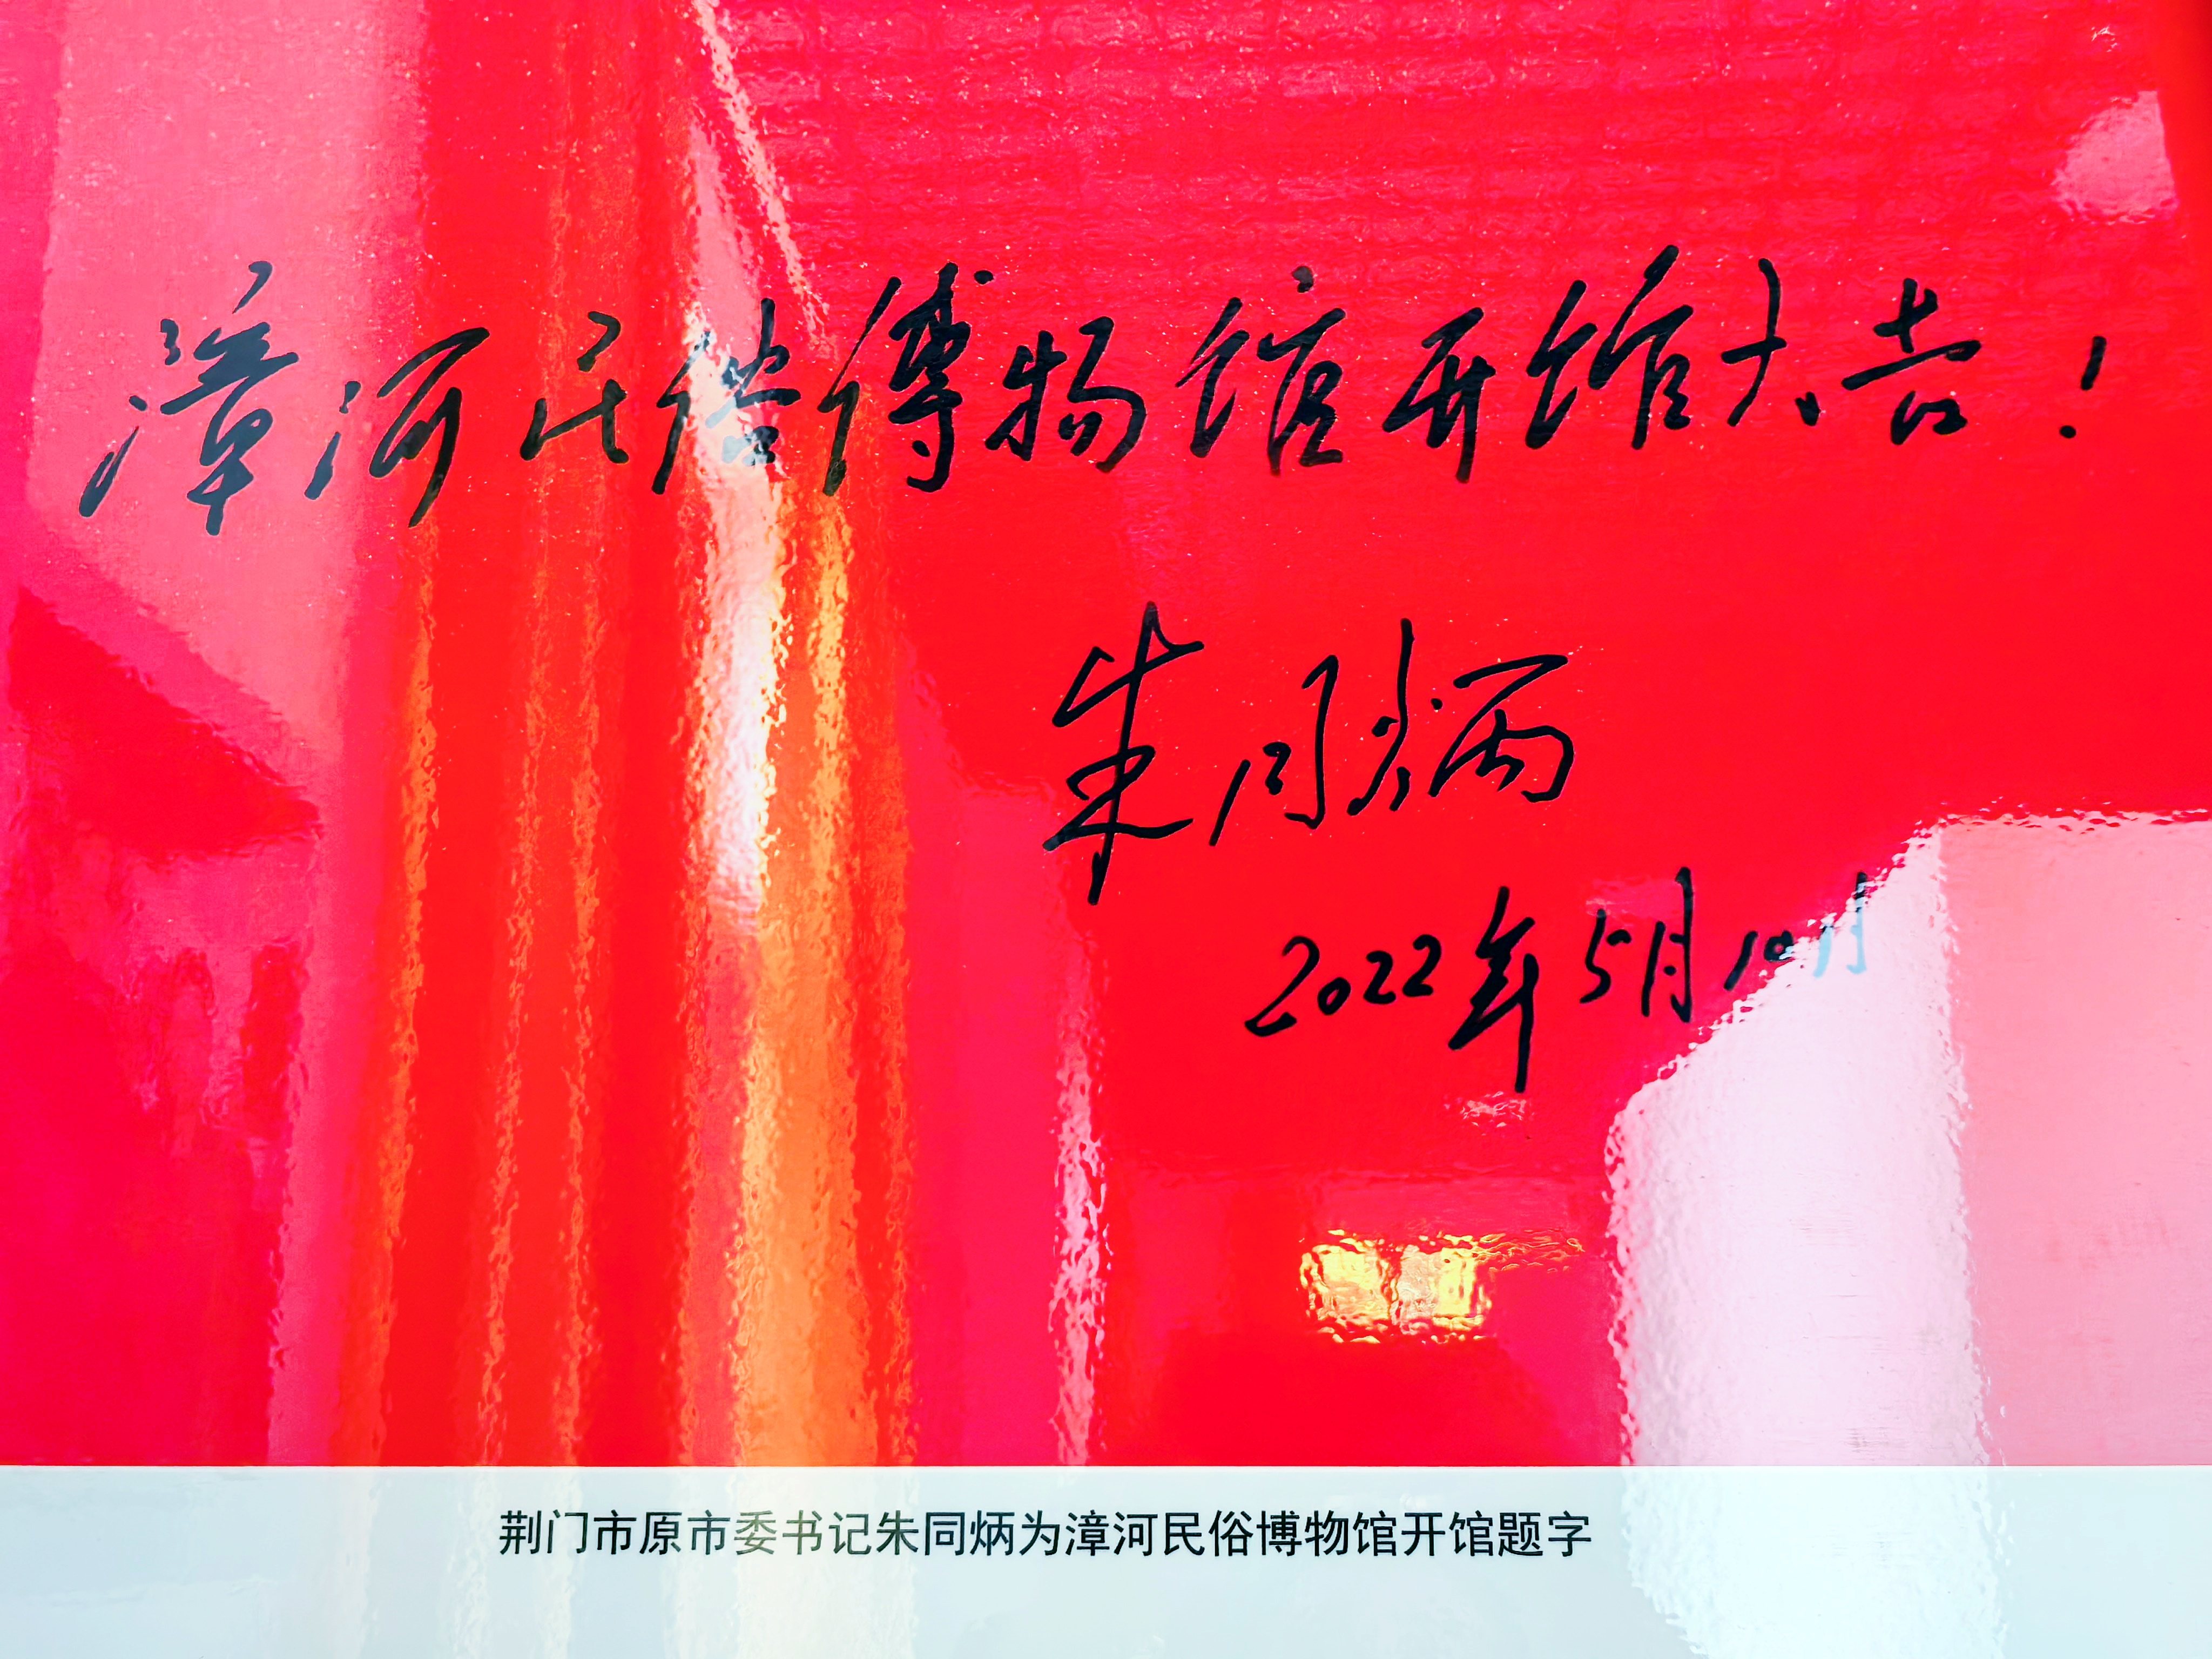 漳河民俗博物馆开馆大吉！
朱同炳
2022年5月10日
荆门市原市委书记朱同炳为漳河民俗博物馆开馆题字